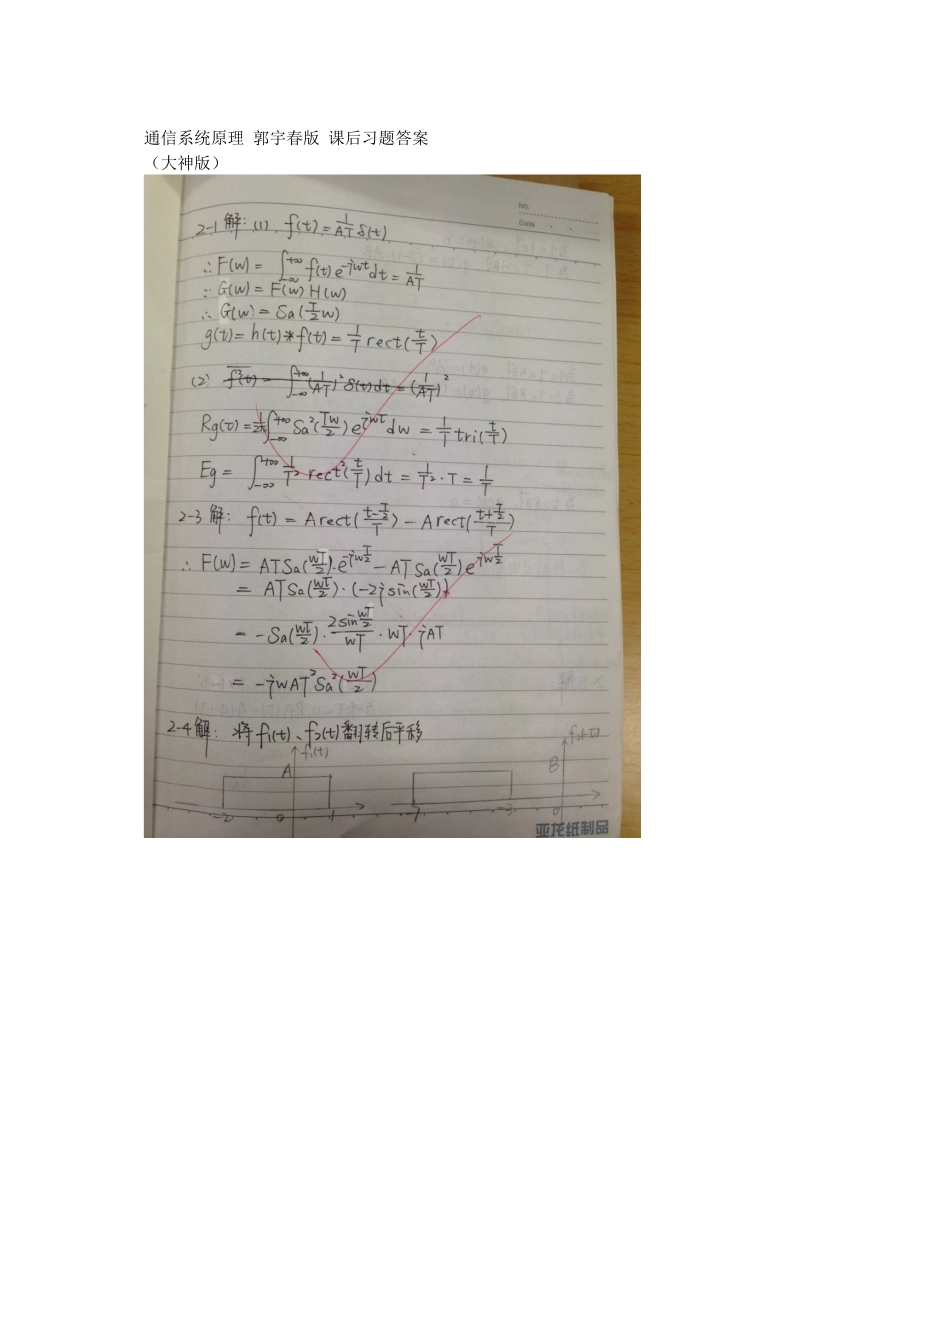 通信系统原理 郭宇春版 课后习题答案
（大神版）
NO.
Date
2-1解: (1) f(t)=1/(AT) δ(t)
∴F(w)=∫_{-∞}^{+∞} f(t)e^{-jwt}dt=1/(AT)
∵G(w)=F(w)H(w)
∴G(w)=Sa(T/2 w)
g(t)=h(t)*f(t)=1/T rect(t/T)
(2) f²(t)=∫_{-∞}^{+∞}(1/(AT))²δ(t)dt=(1/(AT))²
Rg(τ)=1/2π∫_{-∞}^{+∞}Sa²(Tw/2)e^{jwτ}dw=1/T tri(t/T)
Eg=∫_{-∞}^{+∞} 1/T² rect²(t/T)dt=1/T²·T=1/T
2-3解: f(t)=Arect((t-T/2)/T)-Arect((t+T/2)/T)
∴F(w)=ATSa(wT/2)·e^{-jwT/2}-ATSa(wT/2)e^{jwT/2}
=ATSa(wT/2)·(-2jsin(wT/2))
=-Sa(wT/2)·(2sin wT/2)/(wT)·wT·jAT
=-jwAT²Sa²(wT/2)
2-4解: 将f₁(t)、f₂(t)翻转后平移
f₁(t)
A
-2 0 1
-7 -3 0
B
亚龙纸制品